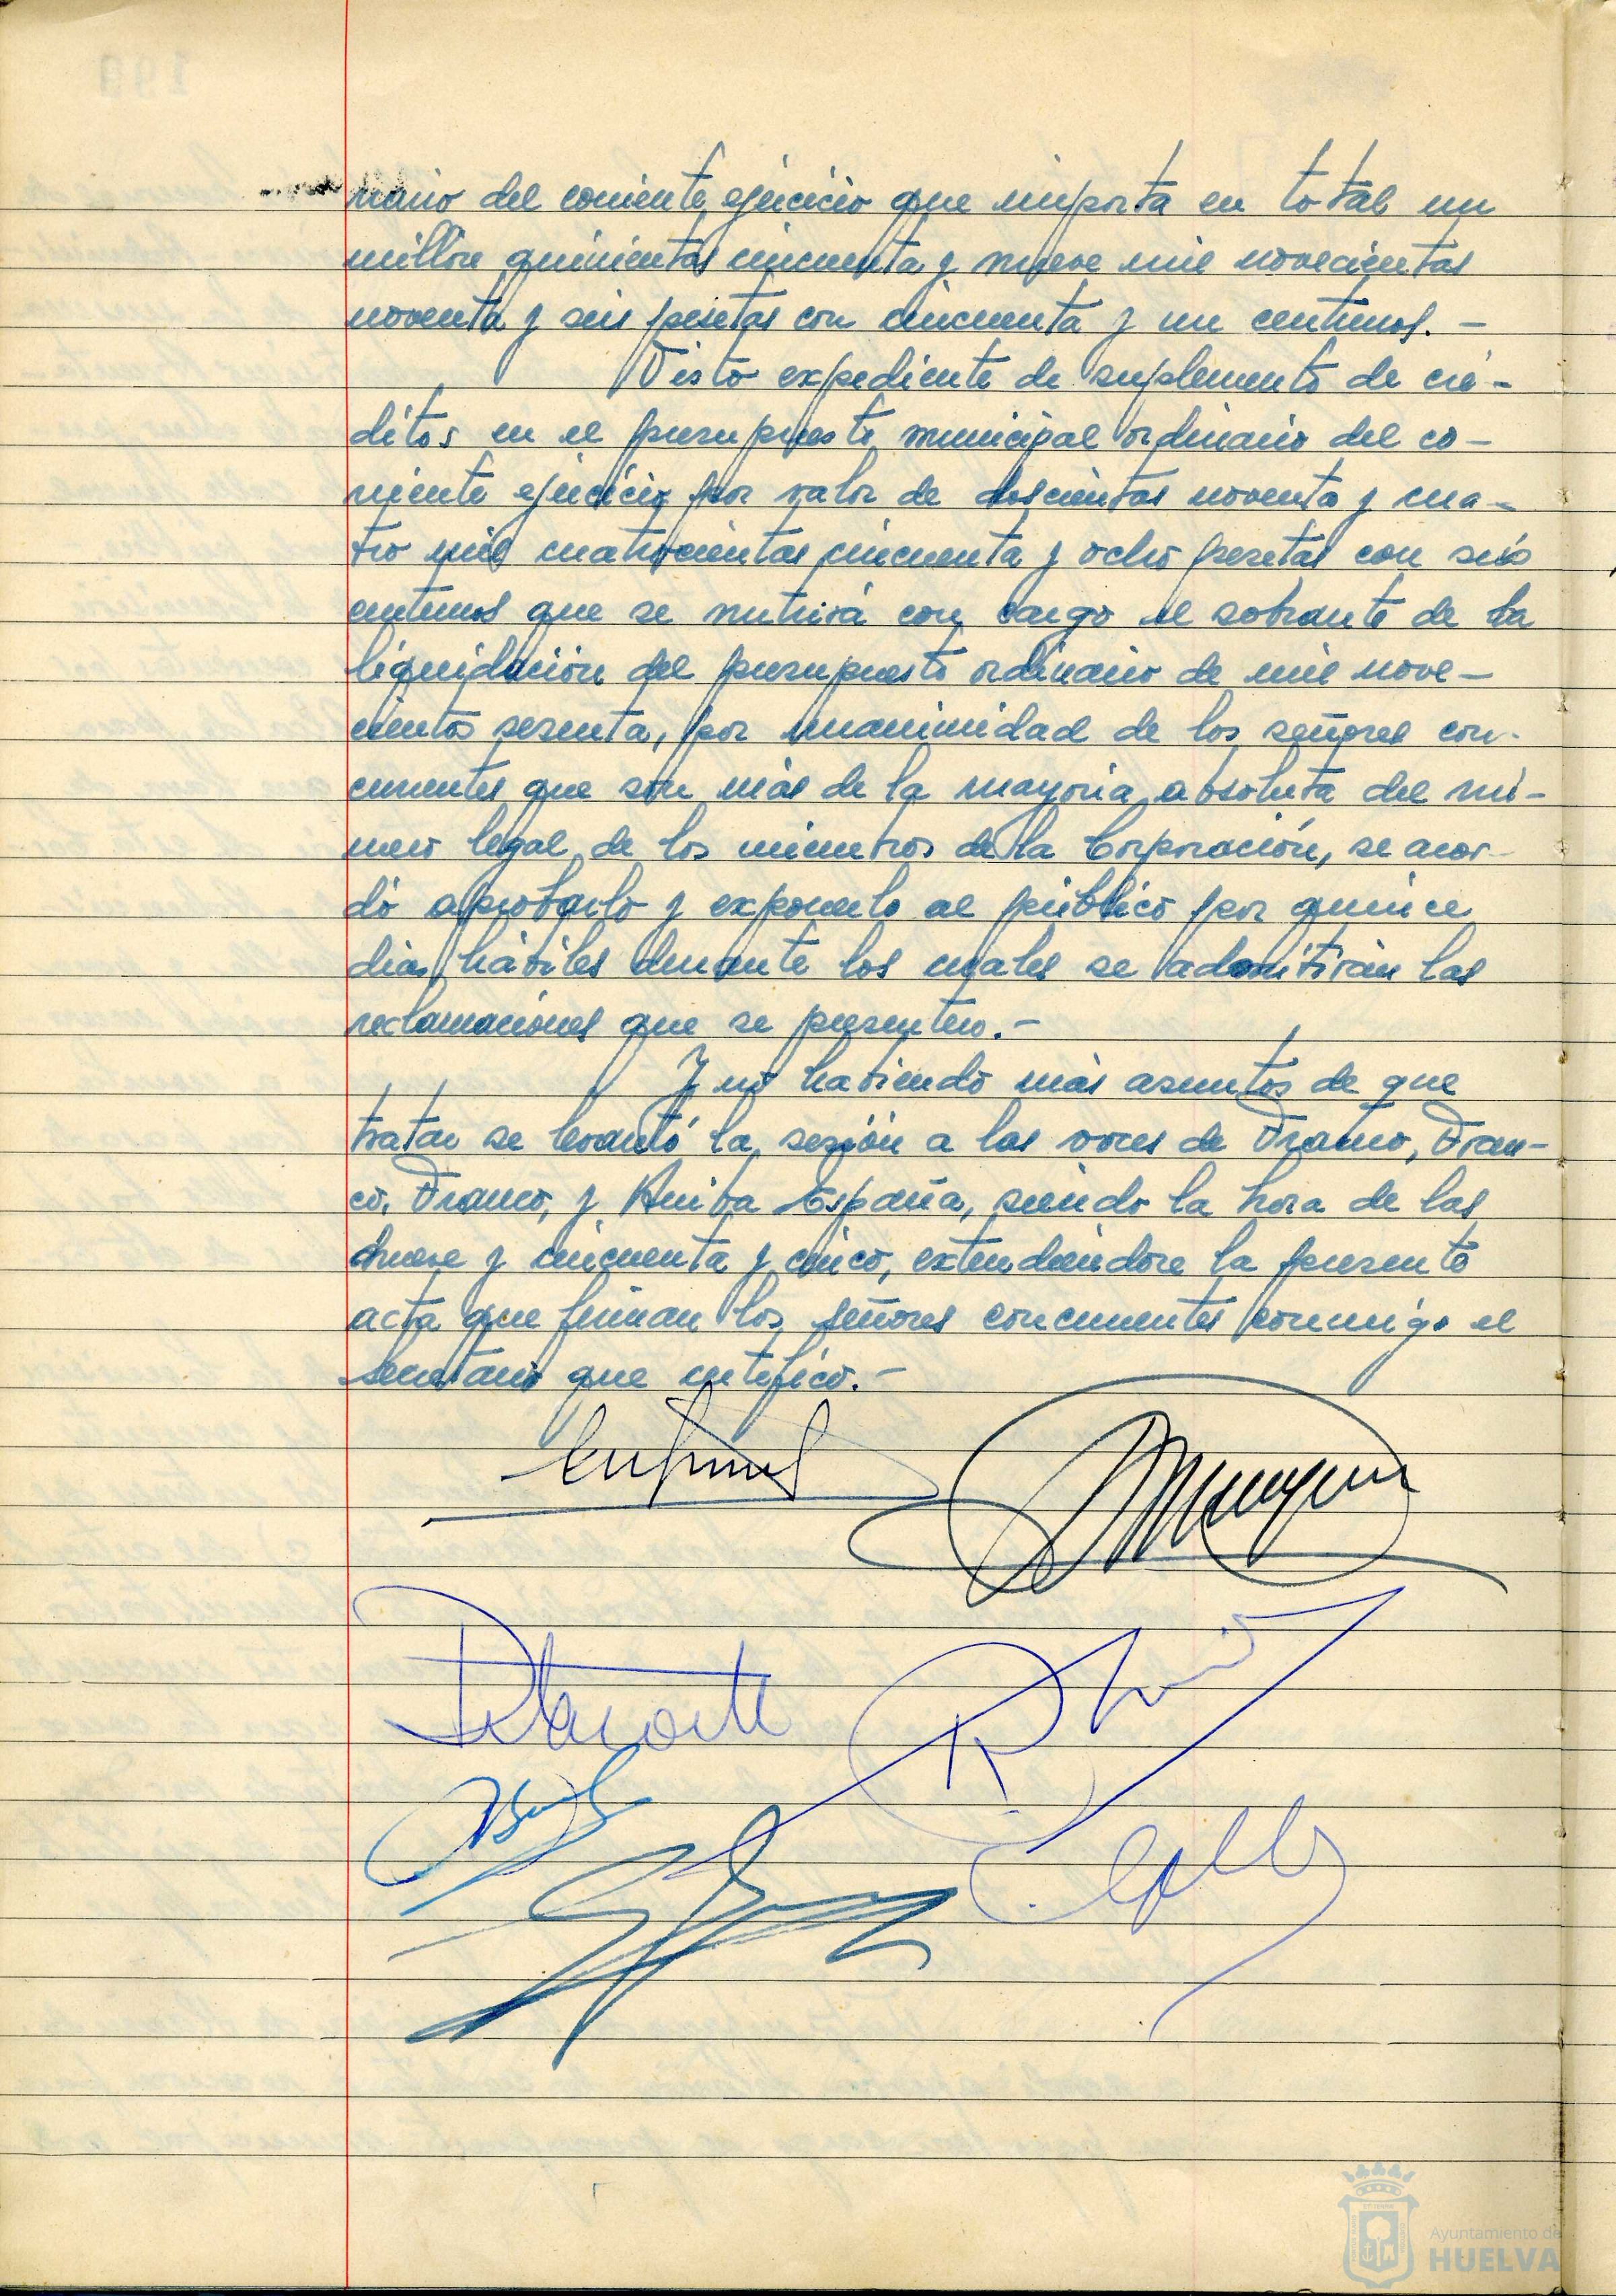 nario del corriente ejercicio que importa en total un
millón quinientas cincuenta y nueve mil novecientas
noventa y seis pesetas con cincuenta y un centimos.-
Visto expediente de suplemento de cré-
ditos en el presupuesto municipal ordinario del co-
rriente ejercicio por valor de doscientas noventa y cua-
tro mil cuatrocientas cincuenta y ocho pesetas con seis
centimos que se nutrirá con cargo al sobrante de la
liquidación del presupuesto ordinario de mil nove-
cientos sesenta, por unanimidad de los señores con-
currentes que son más de la mayoria absoluta del nú-
mero legal de los miembros de la Corporación, se acor-
dó aprobarlo y exponerlo al público por quince
dias hábiles durante los cuales se admitirán las
reclamaciones que se presenten.-
Y no habiendo más asuntos de que
tratar se levantó la sesión a las voces de Franco, Fran-
co, Franco, y Arriba España, siendo la hora de las
nueve y cincuenta y cinco, extendiendose la presente
acta que firman los señores concurrentes conmigo el
Secretario que certifico.-
Ayuntamiento de
HUELVA